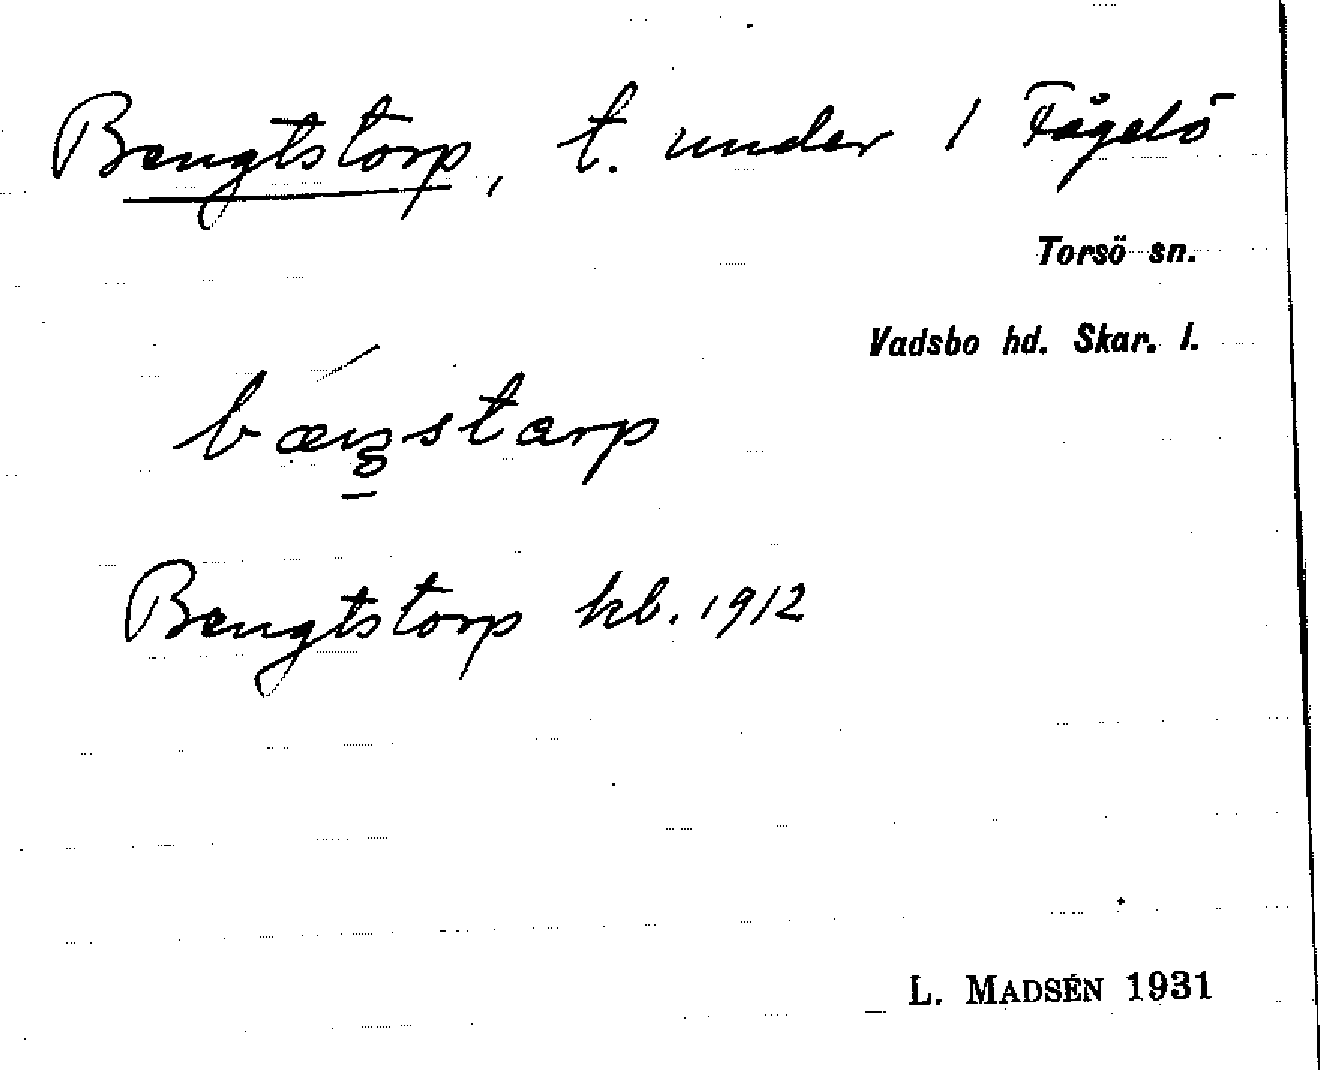 Bengtstorp, t. under 1 Fågelö
Torsö sn.
Vadsbo hd. Skar. l.
Bengtstorp kb. 1912
L. MADSÉN 1931